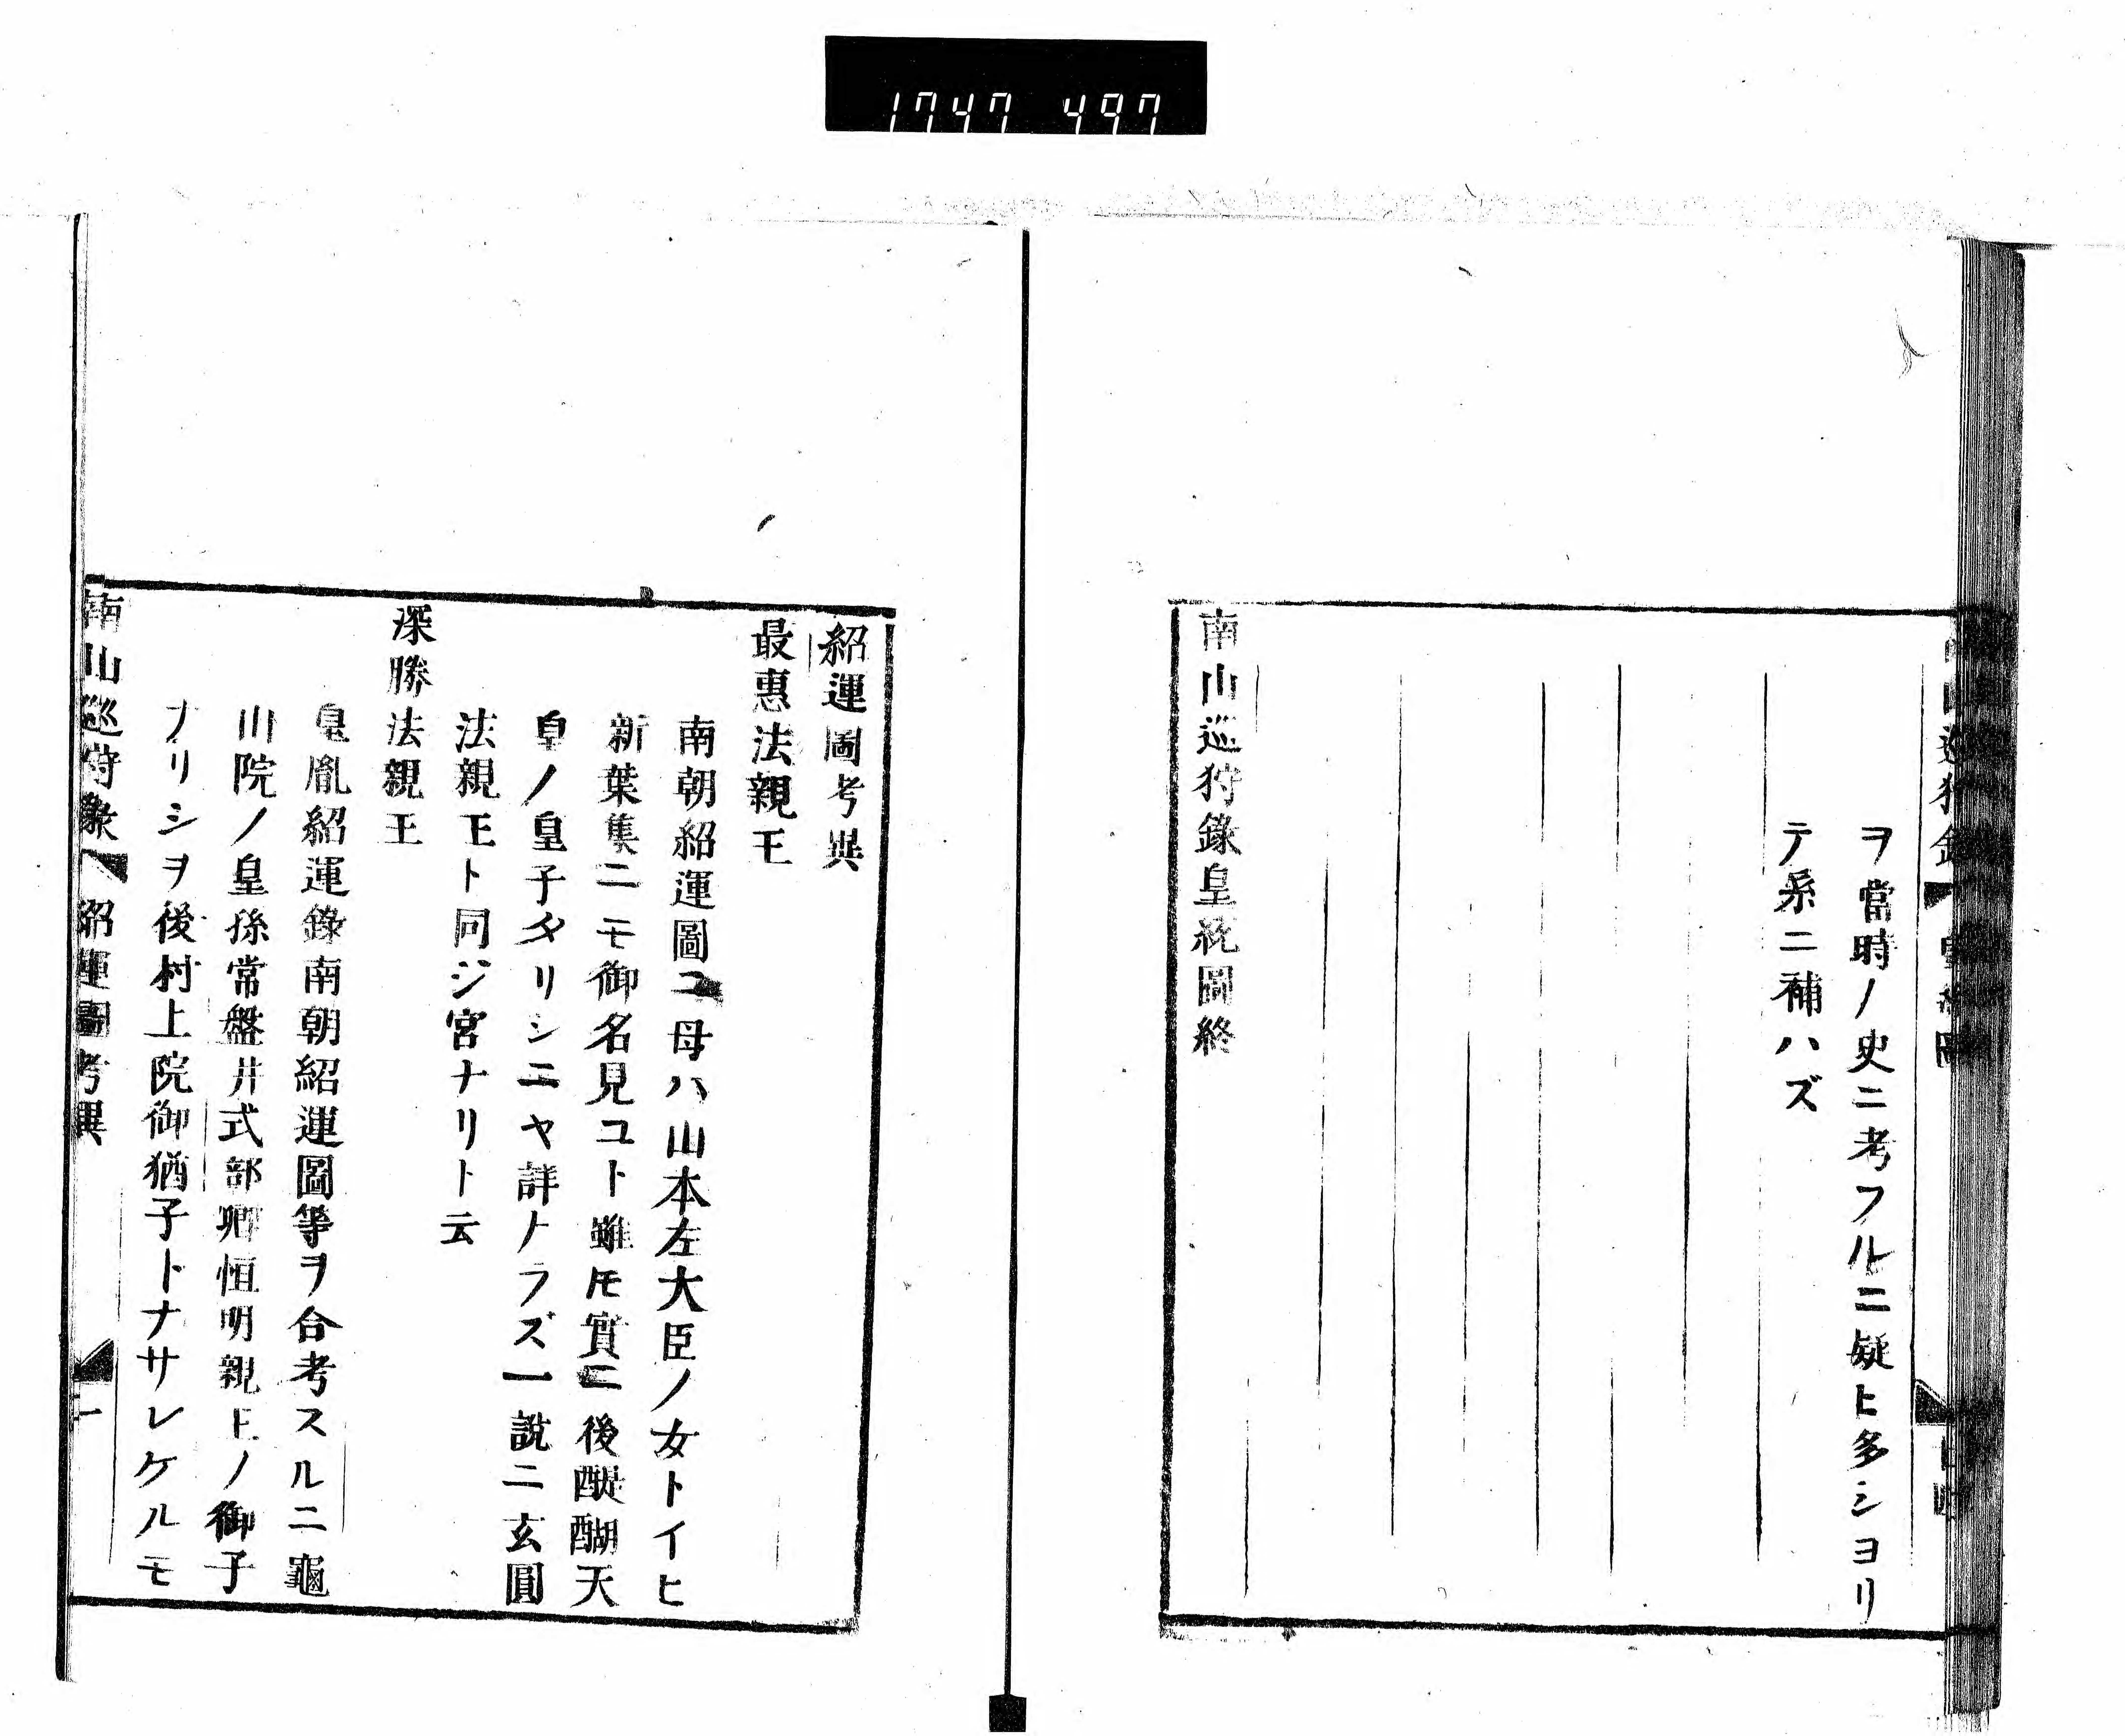 1747 497
ヲ當時ノ史ニ考フルニ疑ヒ多シヨリ
テ系ニ補ハズ
南山巡狩錄皇統圖終
紹運圖考異
最惠法親王
南朝紹運圖ニ母ハ山本左大臣ノ女トイヒ
新葉集ニモ御名見ユト雖モ實ニ後醍醐天
皇ノ皇子タリシニヤ詳ナラズ一說ニ玄圓
法親王ト同ジ宮ナリト云
深勝法親王
皇胤紹運錄南朝紹運圖等ヲ合考スルニ龜
山院ノ皇孫常盤井式部卿恒明親王ノ御子
ナリシヲ後村上院御猶子トナサレケルモ
南山巡狩錄 紹運圖考異 一